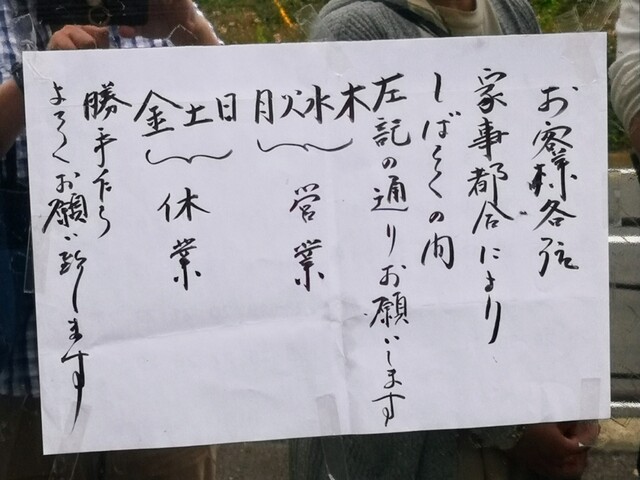 お客様各位
家事都合により
しばらくの間
左記の通りお願いします
月火水木
営業
金土日
休業
勝手乍ら
よろしくお願い致します